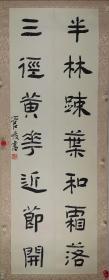 半林疎葉和霜落
三徑黄華近節開